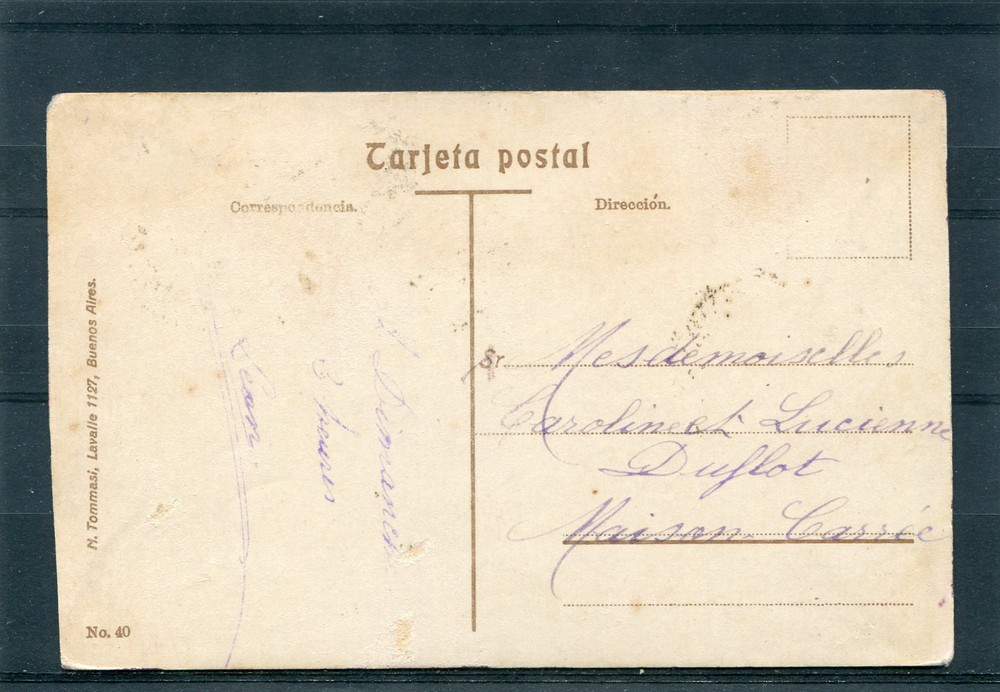 Tarjeta postal
Correspondencia.
Dirección.
Dimanche
3 heures
Jean
Sr.
Mesdemoiselles
Caroline et Lucienne
Duflot
Maison Carrée
N. Tommasi, Lavalle 1127, Buenos Aires.
No. 40